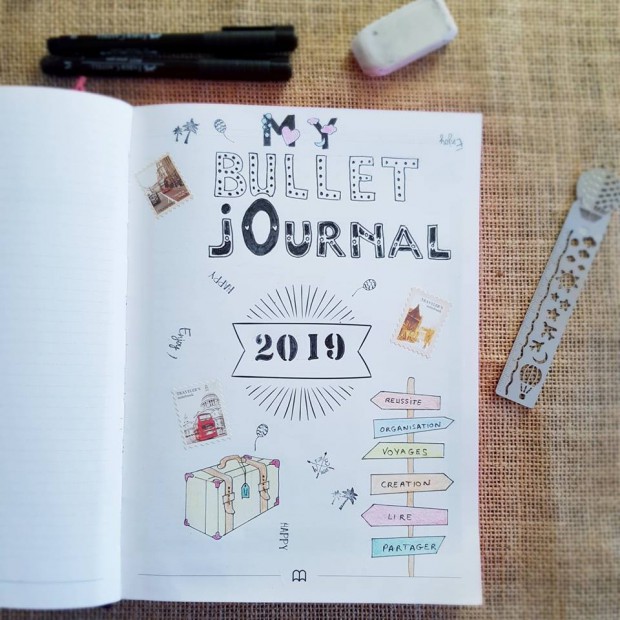 MY
Enjoy
BULLET
jOURNAL
HAPPY
TRAVELER'S
Enjoy )
2019
TRAVELER'S
REUSSITE
ORGANISATION
VOYAGES
CREATION
LIRE
PARTAGER
HAPPY